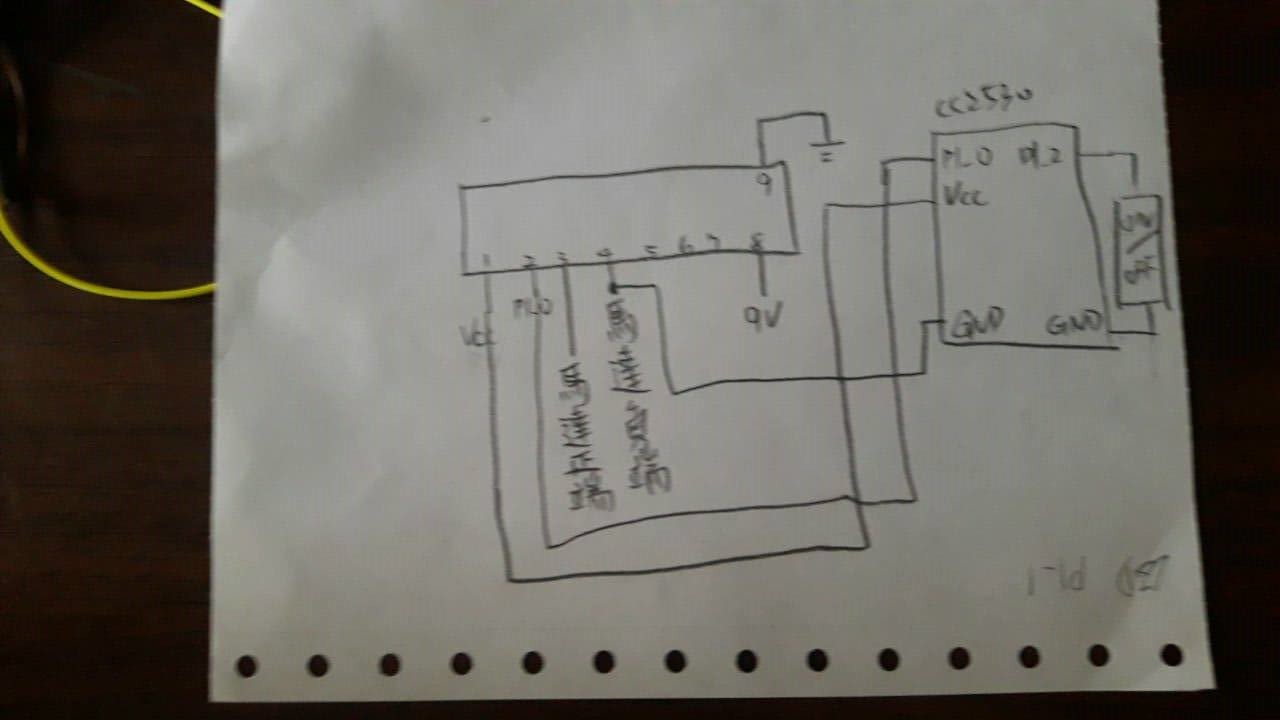 CC2530
P1_0 P1_2
Vcc
GND GND
ON/OFF
9
1 2 3 4 5 6 7 8
Vcc
P1_0
9V